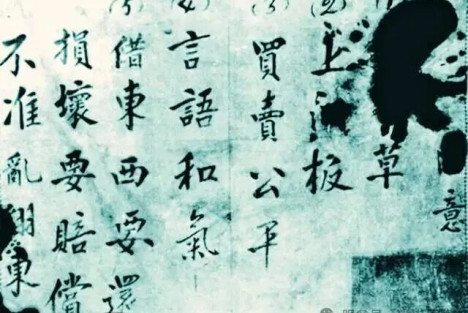 意
草
(2)上板
(3)買賣公平
(4)言語和氣
(5)借東西要還
損壞要賠償
不准亂翻東